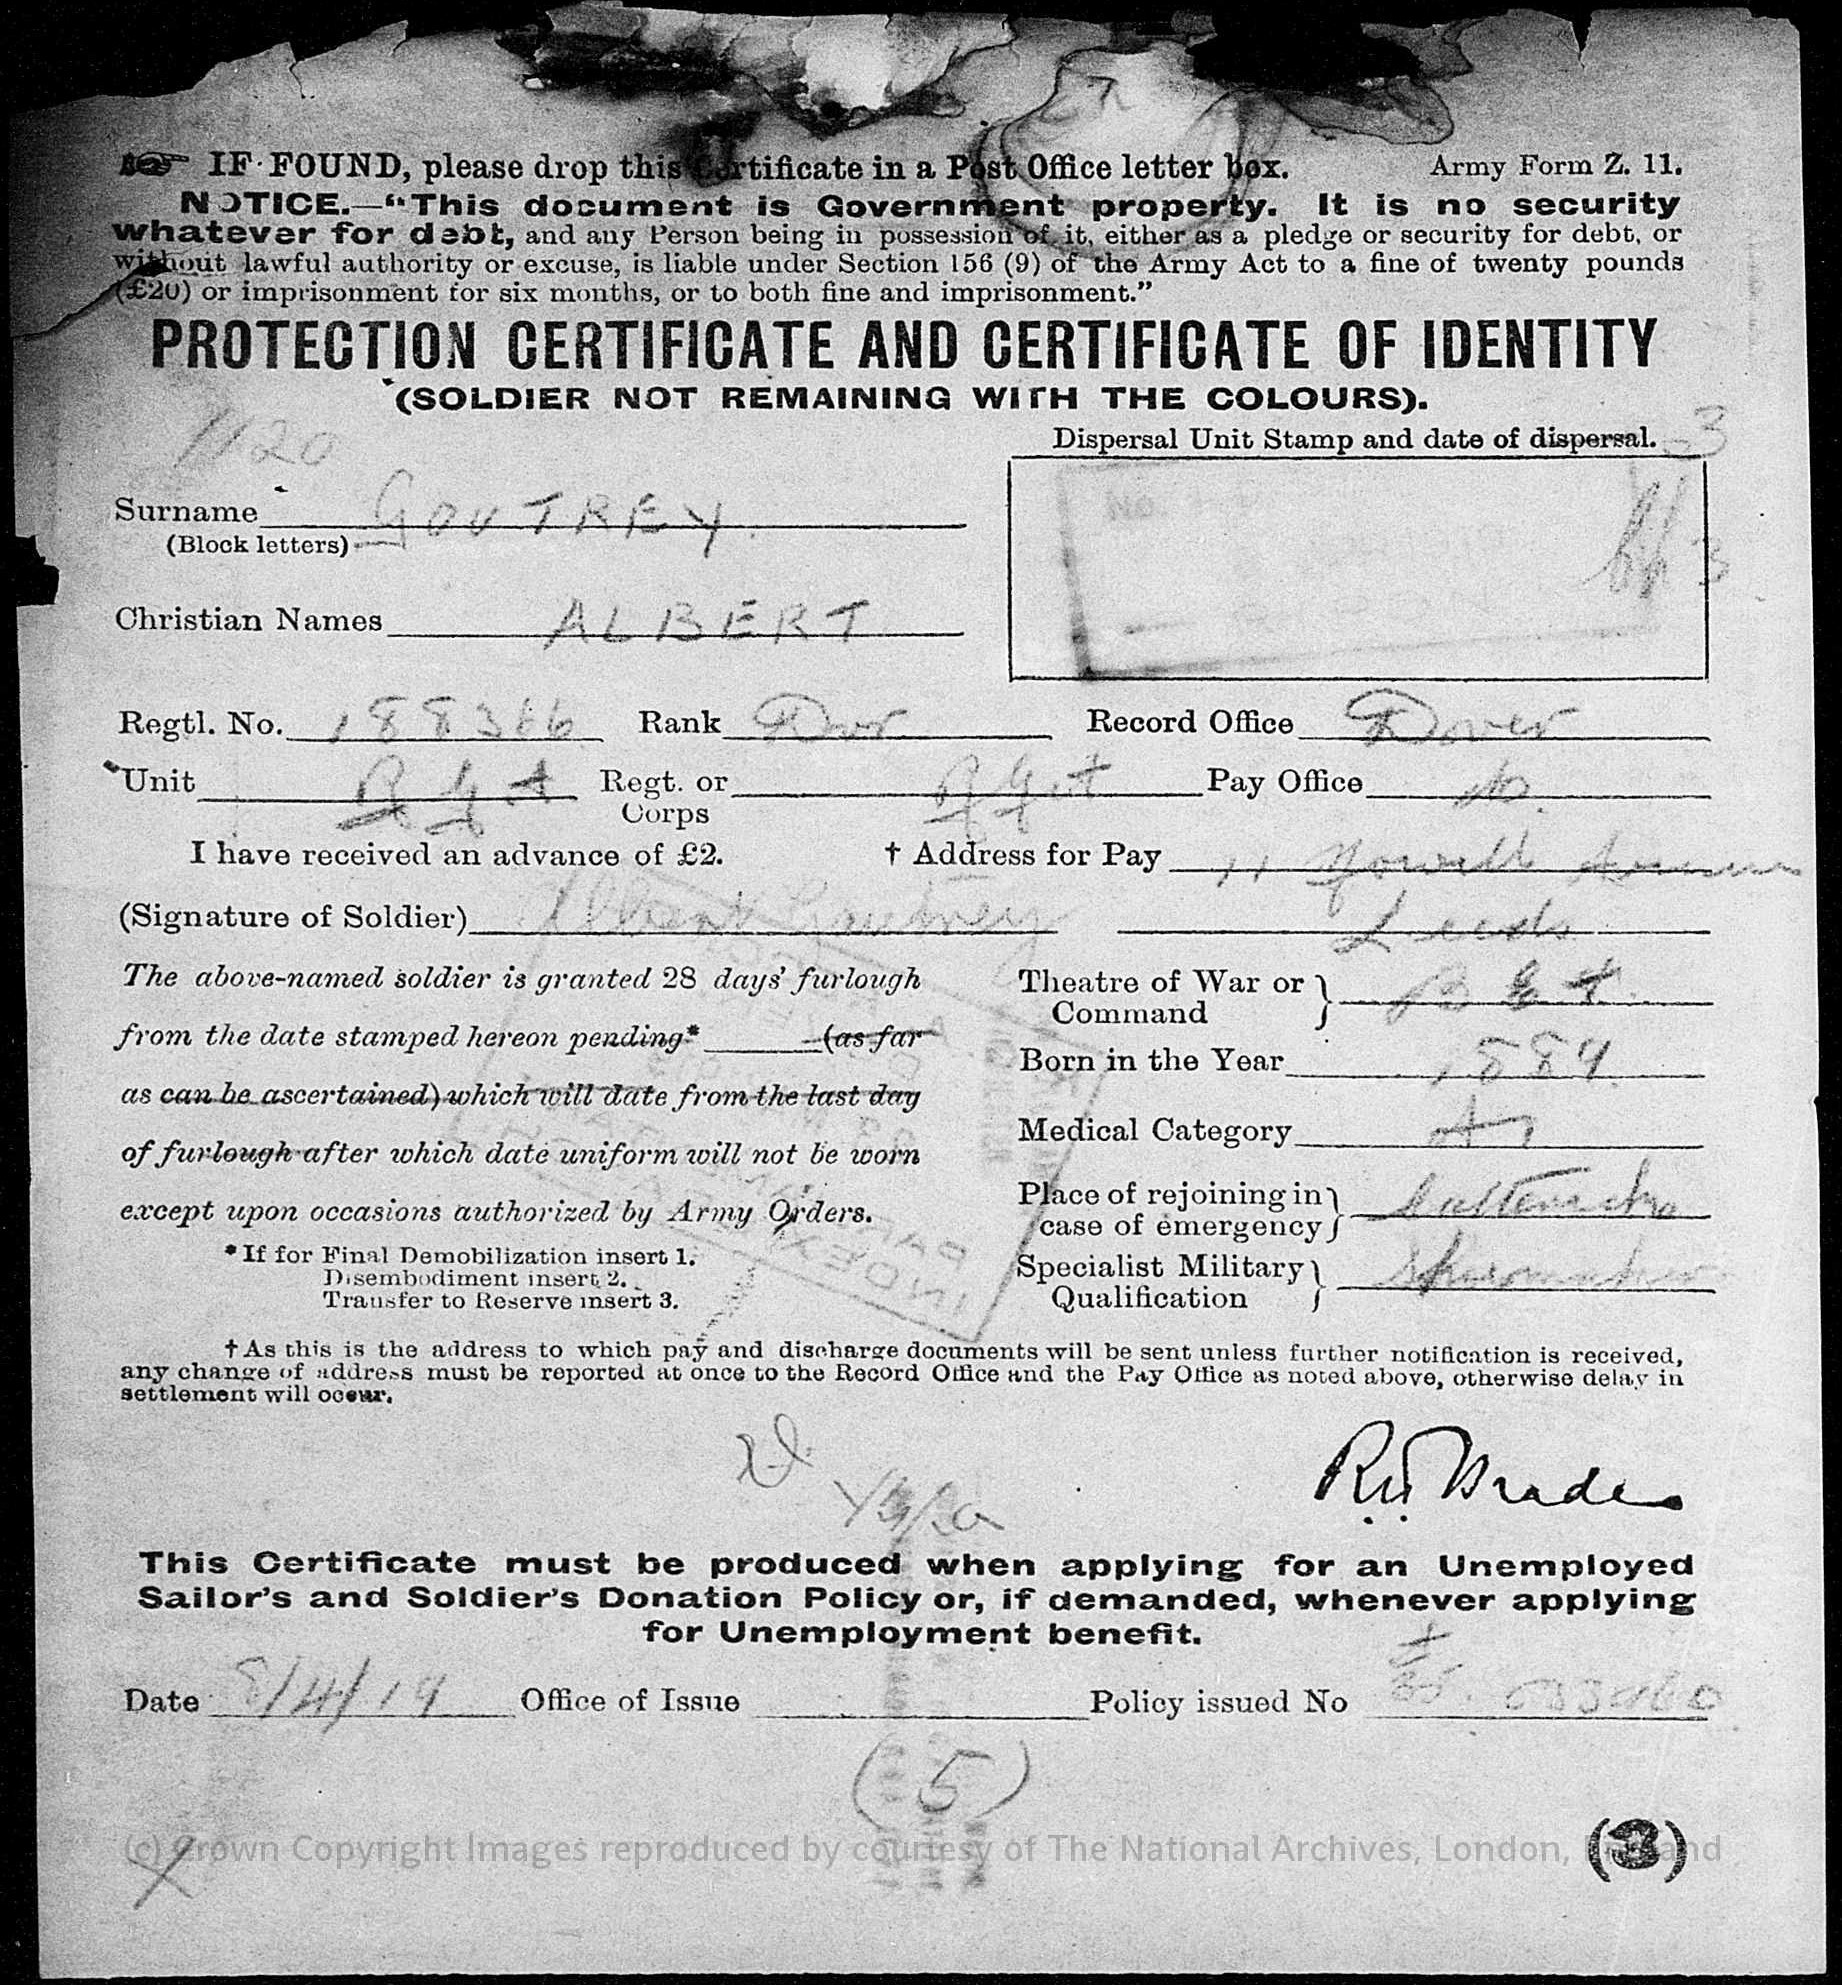 IF FOUND, please drop this Certificate in a Post Office letter box. Army Form Z. 11.
NOTICE.—“This document is Government property. It is no security
whatever for debt, and any Person being in possession of it, either as a pledge or security for debt, or
without lawful authority or excuse, is liable under Section 156 (9) of the Army Act to a fine of twenty pounds
(£20) or imprisonment for six months, or to both fine and imprisonment.”
PROTECTION CERTIFICATE AND CERTIFICATE OF IDENTITY
(SOLDIER NOT REMAINING WITH THE COLOURS).
1120
Dispersal Unit Stamp and date of dispersal. 3
No.
Surname GOUTREY.
(Block letters)
Christian Names ALBERT
Regtl. No. 188366 Rank Dvr Record Office Dover
Unit Regt. or Corps Pay Office do.
I have received an advance of £2. † Address for Pay 11
(Signature of Soldier) Albert Gautrey Leeds
The above-named soldier is granted 28 days’ furlough
from the date stamped hereon pending* (as far
as can be ascertained) which will date from the last day
of furlough after which date uniform will not be worn
except upon occasions authorized by Army Orders.
*If for Final Demobilization insert 1.
Disembodiment insert 2.
Transfer to Reserve insert 3.
Theatre of War or Command B E F
Born in the Year 1884
Medical Category A1
Place of rejoining in case of emergency
Specialist Military Qualification
† As this is the address to which pay and discharge documents will be sent unless further notification is received,
any change of address must be reported at once to the Record Office and the Pay Office as noted above, otherwise delay in
settlement will occur.
This Certificate must be produced when applying for an Unemployed
Sailor’s and Soldier’s Donation Policy or, if demanded, whenever applying
for Unemployment benefit.
Date 8/4/19 Office of Issue Policy issued No
(5)
(3)
(c) Crown Copyright Images reproduced by courtesy of The National Archives, London, England